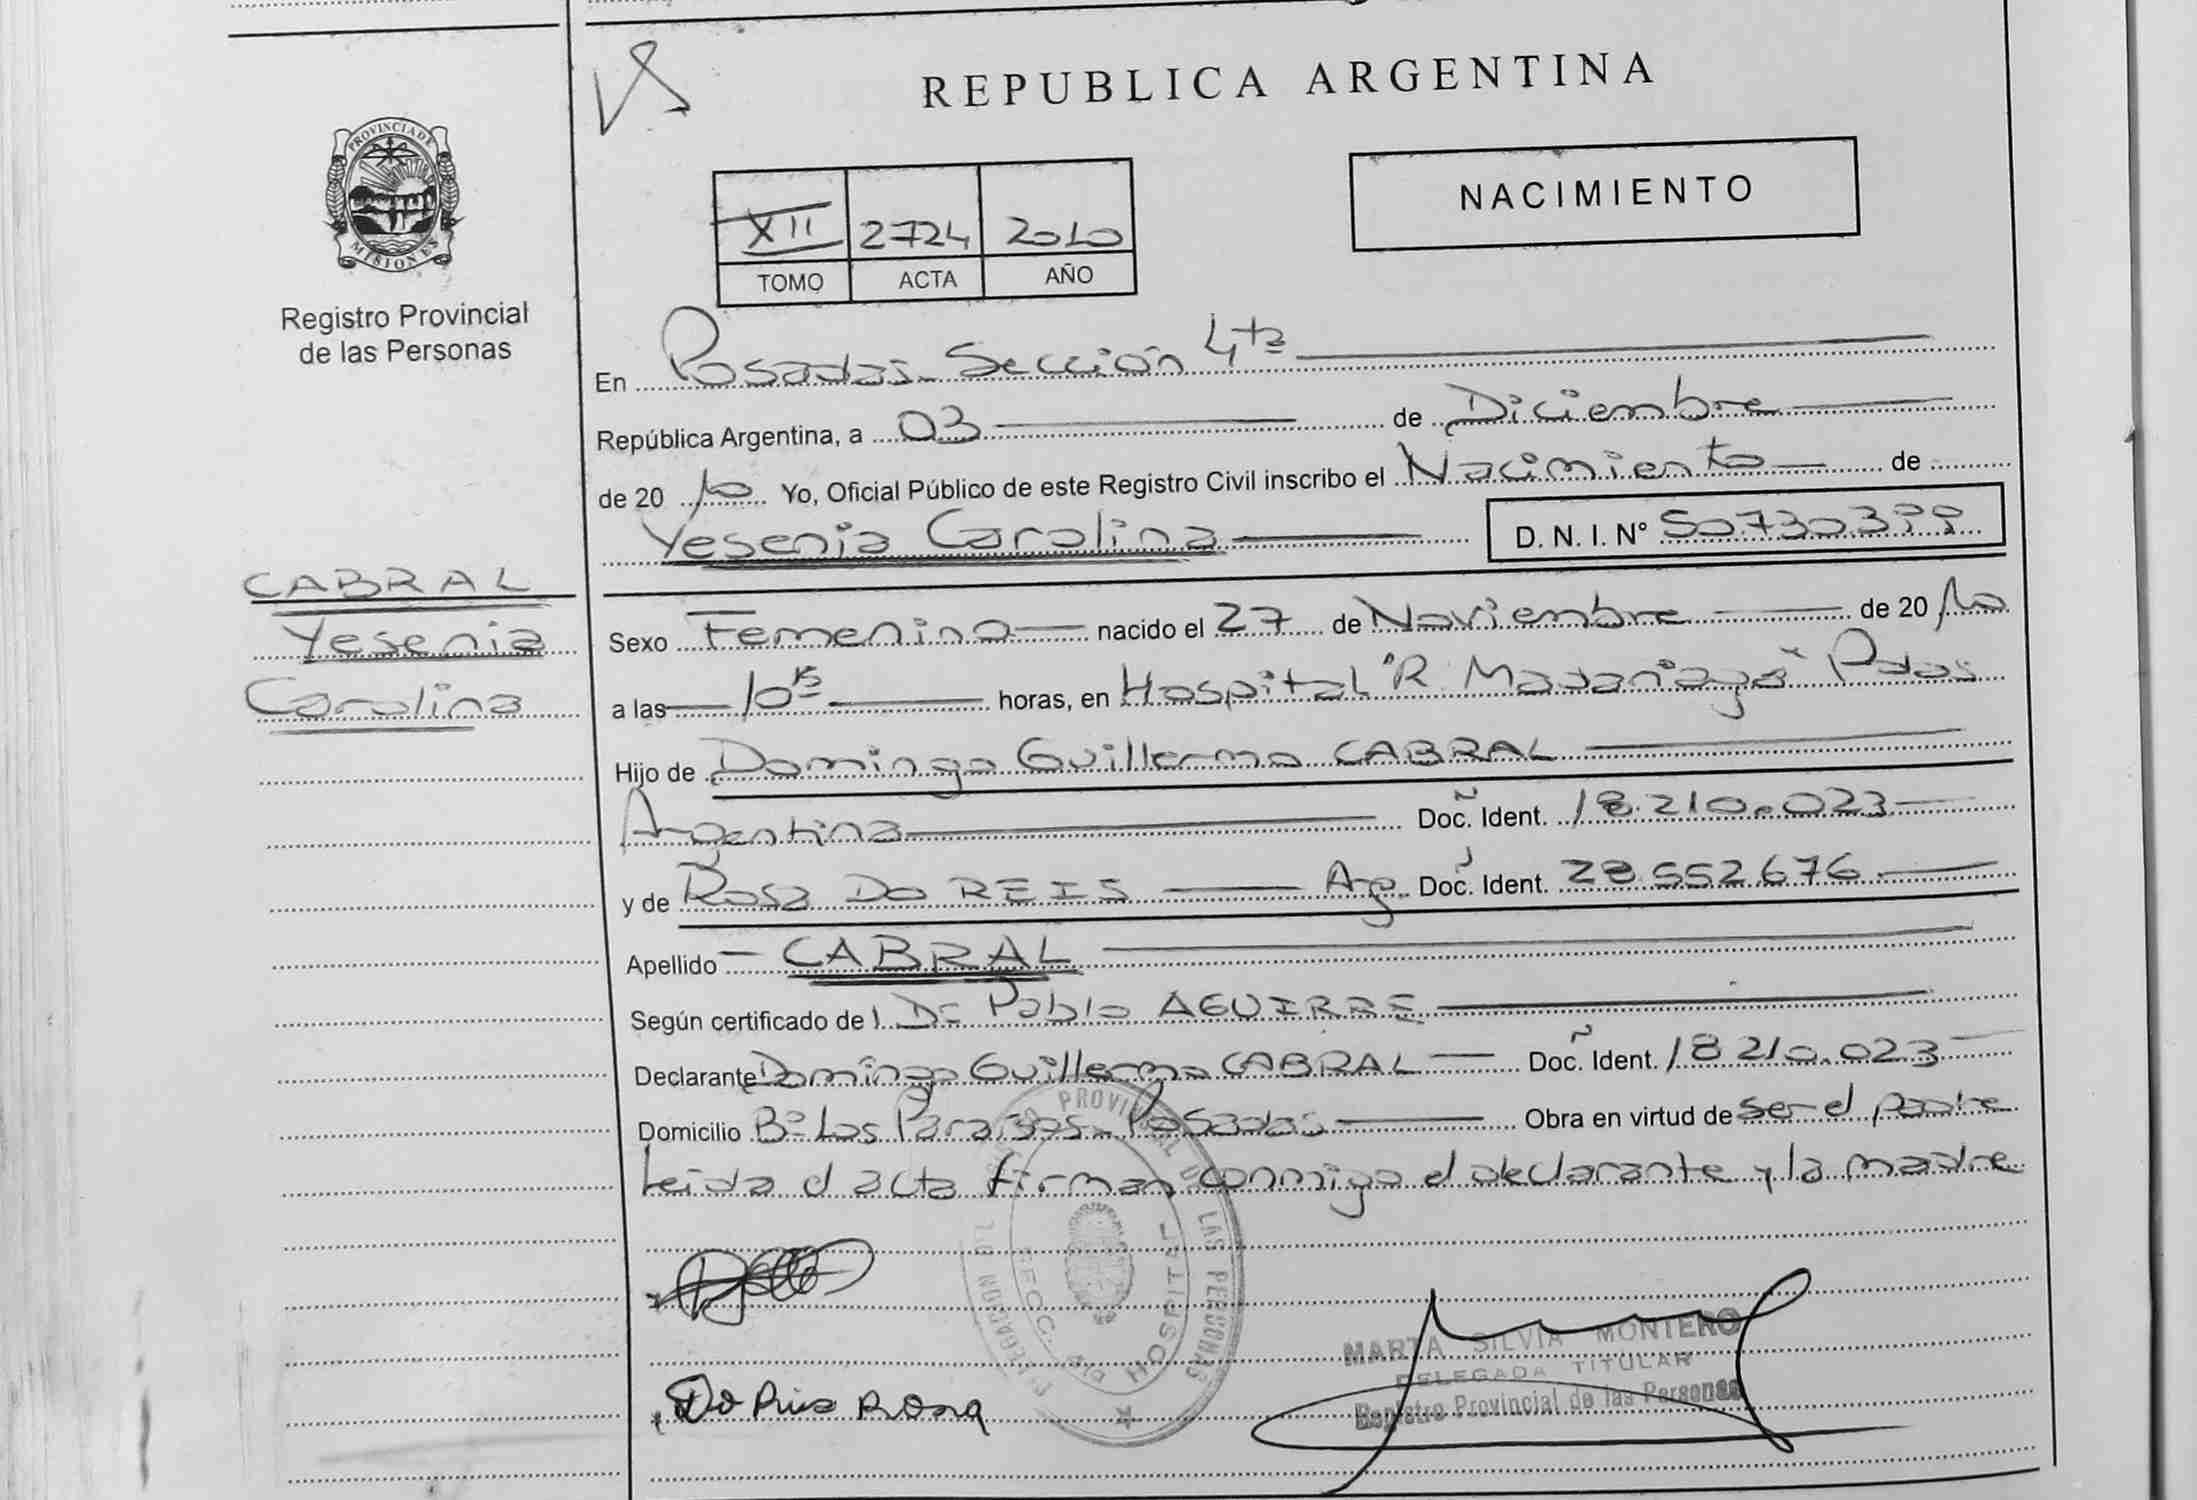 REPUBLICA ARGENTINA
PROVINCIA DE MISIONES
Registro Provincial
de las Personas
NACIMIENTO
XII 2724 2010
TOMO ACTA AÑO
En Posadas Sección 4ta
República Argentina, a 03 de Diciembre
de 20 10 Yo, Oficial Público de este Registro Civil inscribo el Nacimiento de
Yesenia Carolina D. N. I. N° 50.730.399
CABRAL
Yesenia
Carolina
Sexo Femenino nacido el 27 de Noviembre de 20 10
a las 10 15 horas, en Hospital "R. Madariaga" Pdas
Hijo de Domingo Guillermo CABRAL
Argentina Doc. Ident. 18.210.023
y de Rosa DO REIS Arg. Doc. Ident. 28.552.676
Apellido CABRAL
Según certificado del Dr Pablo AGUIRRE
Declarante Domingo Guillermo CABRAL Doc. Ident. 18.210.023
Domicilio Bº Los Paraisos Posadas Obra en virtud de ser el padre
Leida el acta firman conmigo el declarante y la madre
PROVINCIAL DE LAS PERSONAS
DELEGACION
SECC.
MARTA SILVIA MONTERO
DELEGADA TITULAR
Registro Provincial de las Personas
Do Rois Rosa